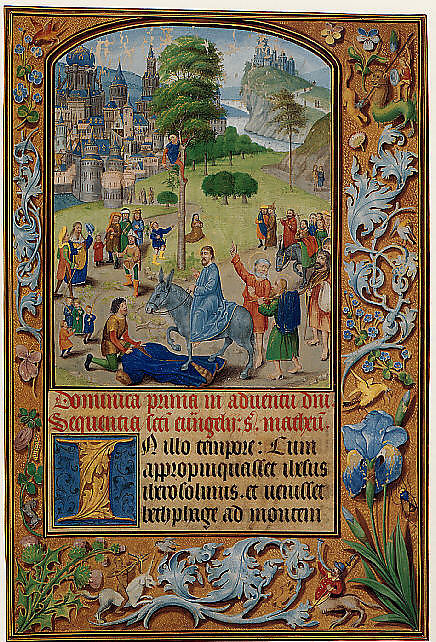 Dominica prima in adventu dni
Sequentia scti euangelij: s. matheu.
IN illo tempore: Cum
appropinquasset ihesus
iherosolimis. et venisset
bethphage ad montem